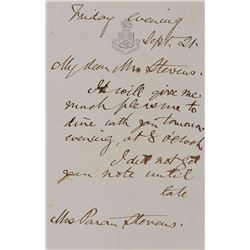 Friday evening
Sept. 21.
My dear Mrs Stevens.
It will give me
much pleasure to
dine with you tomorrow
evening, at 8 o'clock
I did not get
your note until
late
Mrs Paran Stevens.